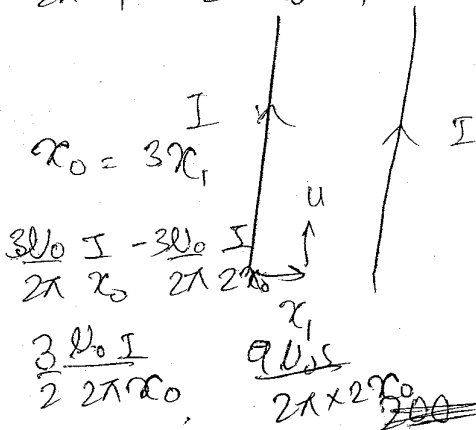 I I
x₀ = 3x₁
u
3μ₀/2π I/x₀ - 3μ₀/2π I/2x₀
x₁
3/2 μ₀I/2πx₀ , 9μ₀I/2π×2x₀